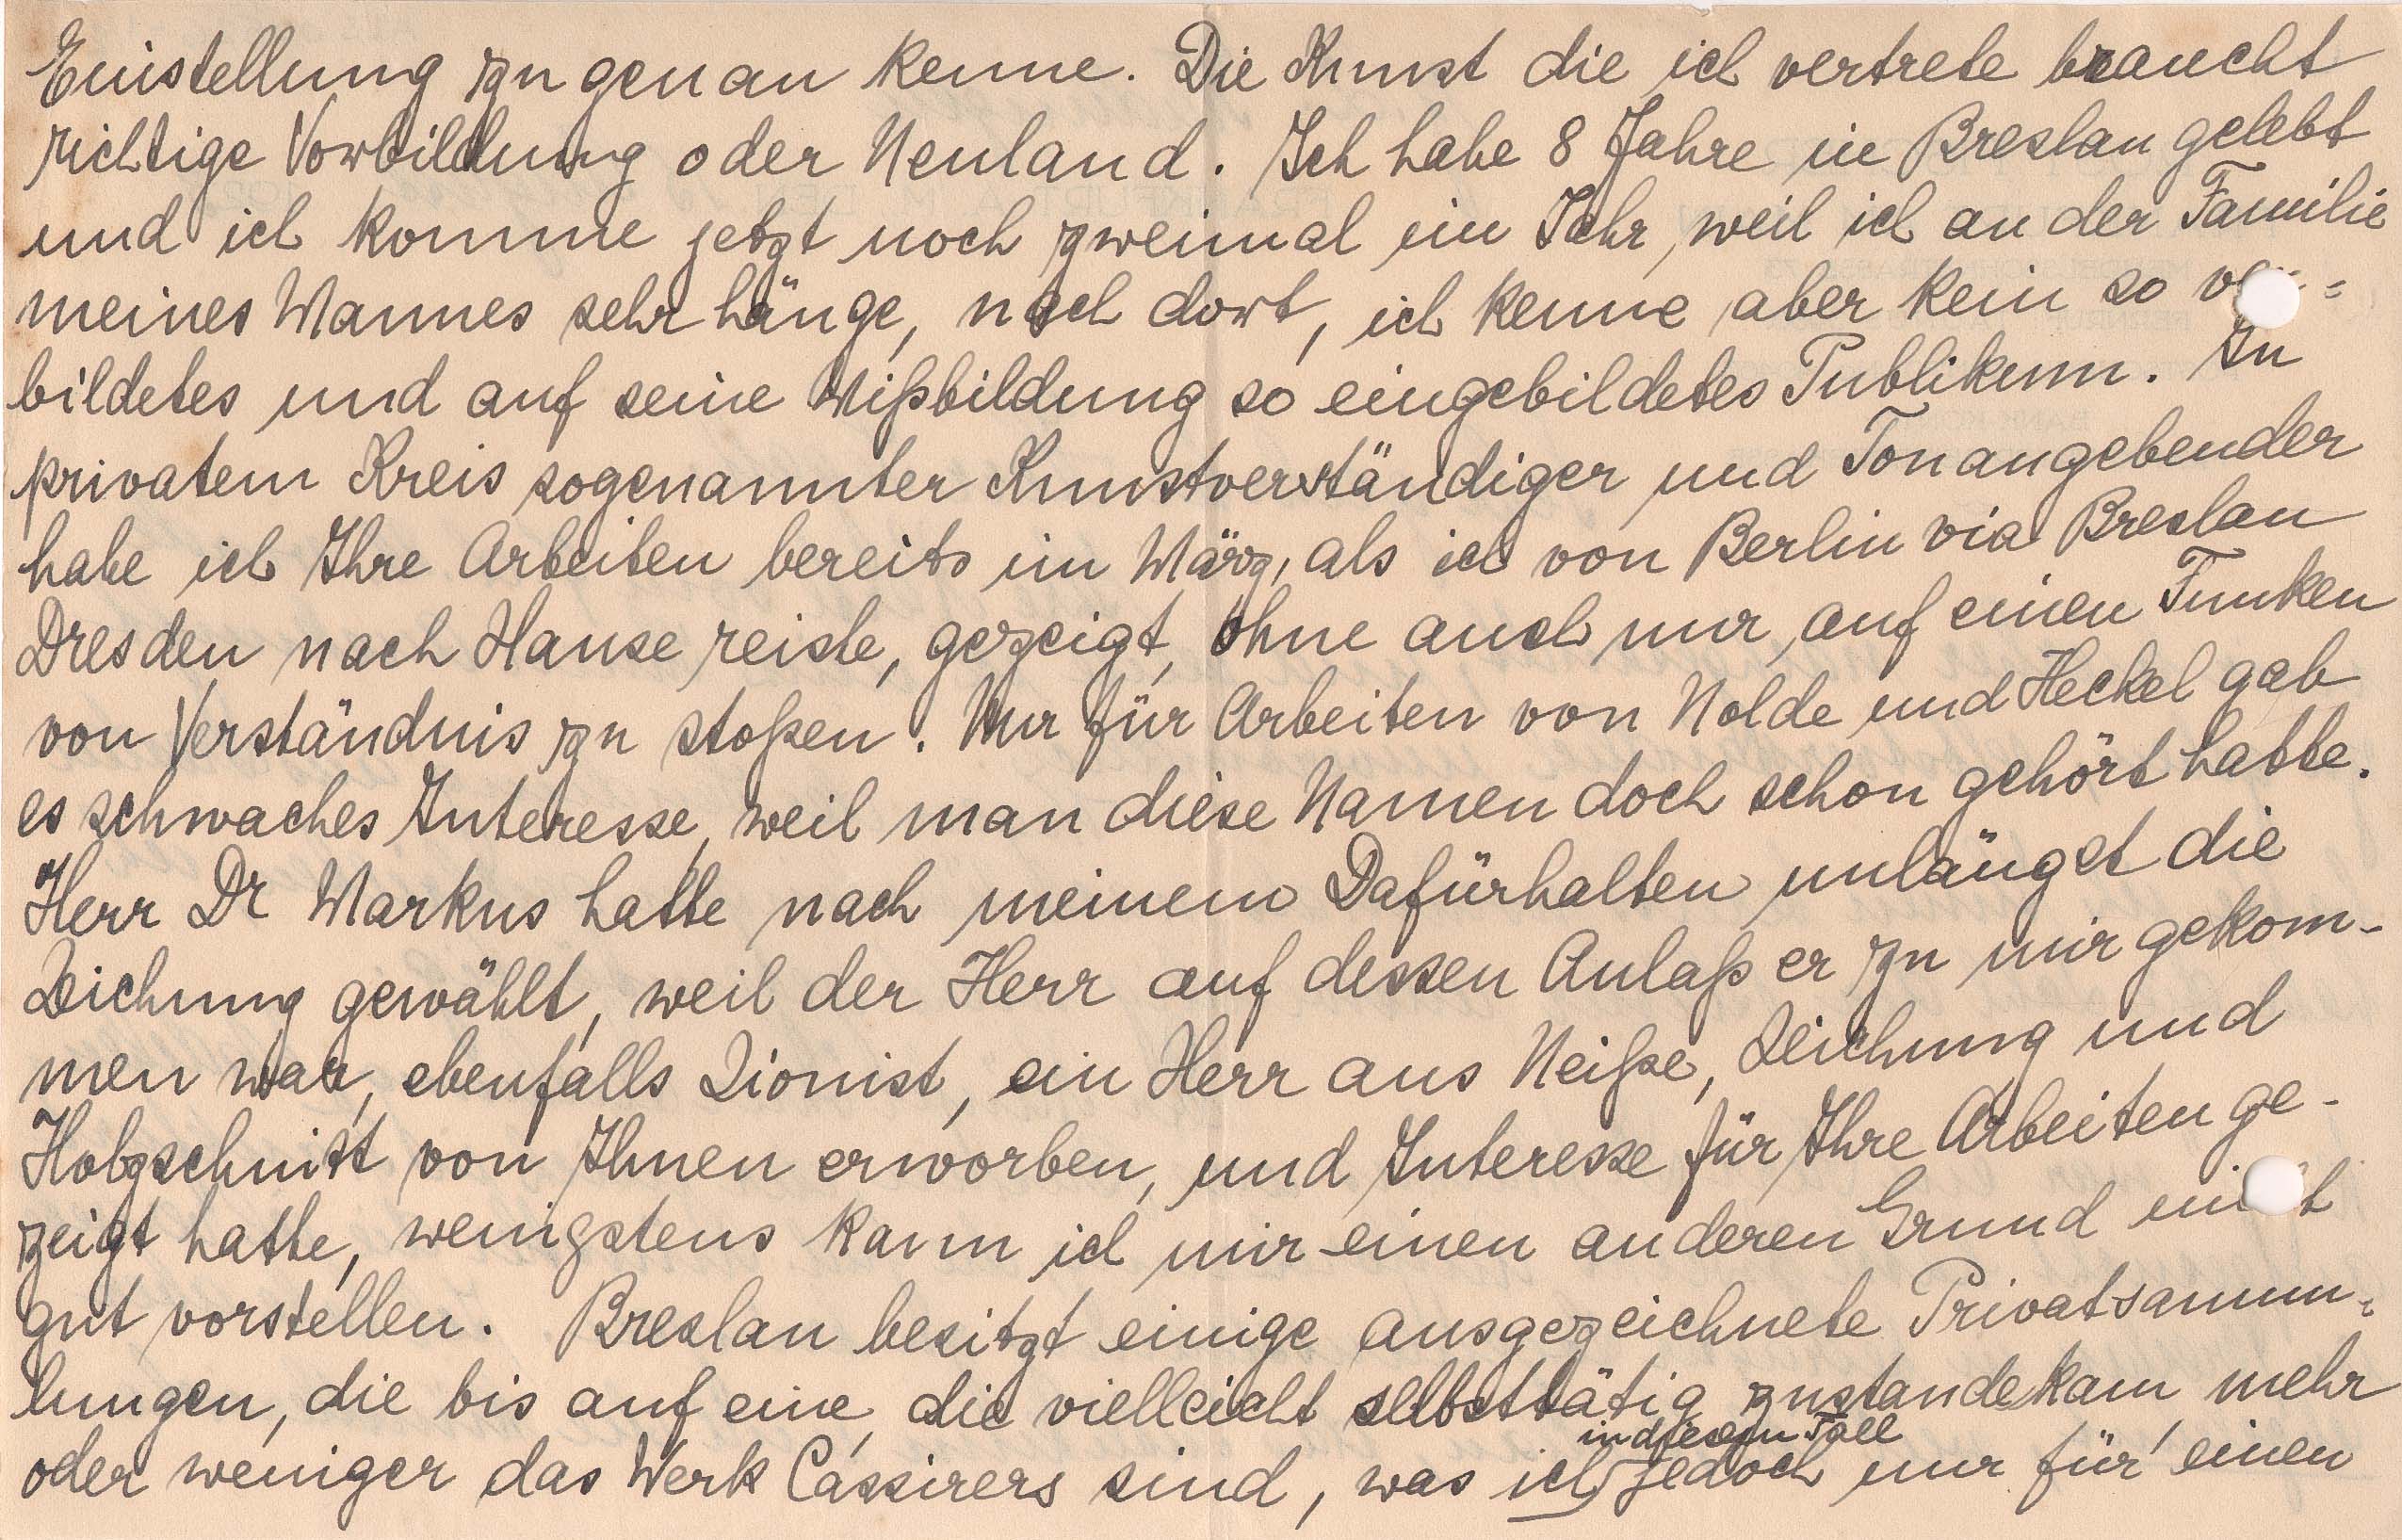 Einstellung zu genau kenne. Die Kunst die ich vertrete braucht
richtige Vorbildung oder Neuland. Ich habe 8 Jahre in Breslau gelebt
und ich komme jetzt noch zweimal im Jahr, weil ich an der Familie
meines Mannes sehr hänge, nach dort, ich kenne aber kein so
bildetes und auf seine Mißbildung so eingebildetes Publikum. In
privatem Kreis sogenannter Kunstverständiger und Tonangebender
habe ich Ihre Arbeiten bereits im März, als ich von Berlin via Breslau
Dresden nach Hause reiste, gezeigt, ohne auch nur auf einen Funken
von Verständnis zu stoßen. Nur für Arbeiten von Nolde und Heckel gab
es schwaches Interesse, weil man diese Namen doch schon gehört hatte.
Herr Dr Markus hatte nach meinem Dafürhalten unlängst die
Zeichnung gewählt, weil der Herr auf dessen Anlaß er zu mir gekom-
men war, ebenfalls Zionist, ein Herr aus Neiße, Zeichnung und
Holzschnitt von Ihnen erworben, und Interesse für Ihre Arbeiten ge-
zeigt hatte, wenigstens kann ich mir einen anderen Grund nicht
gut vorstellen. Breslau besitzt einige ausgezeichnete Privatsamm=
lungen, die bis auf eine, die vielleicht selbsttätig zustandekam mehr
in diesem Fall
oder weniger das Werk Cassirers sind, was ich jedoch nur für einen